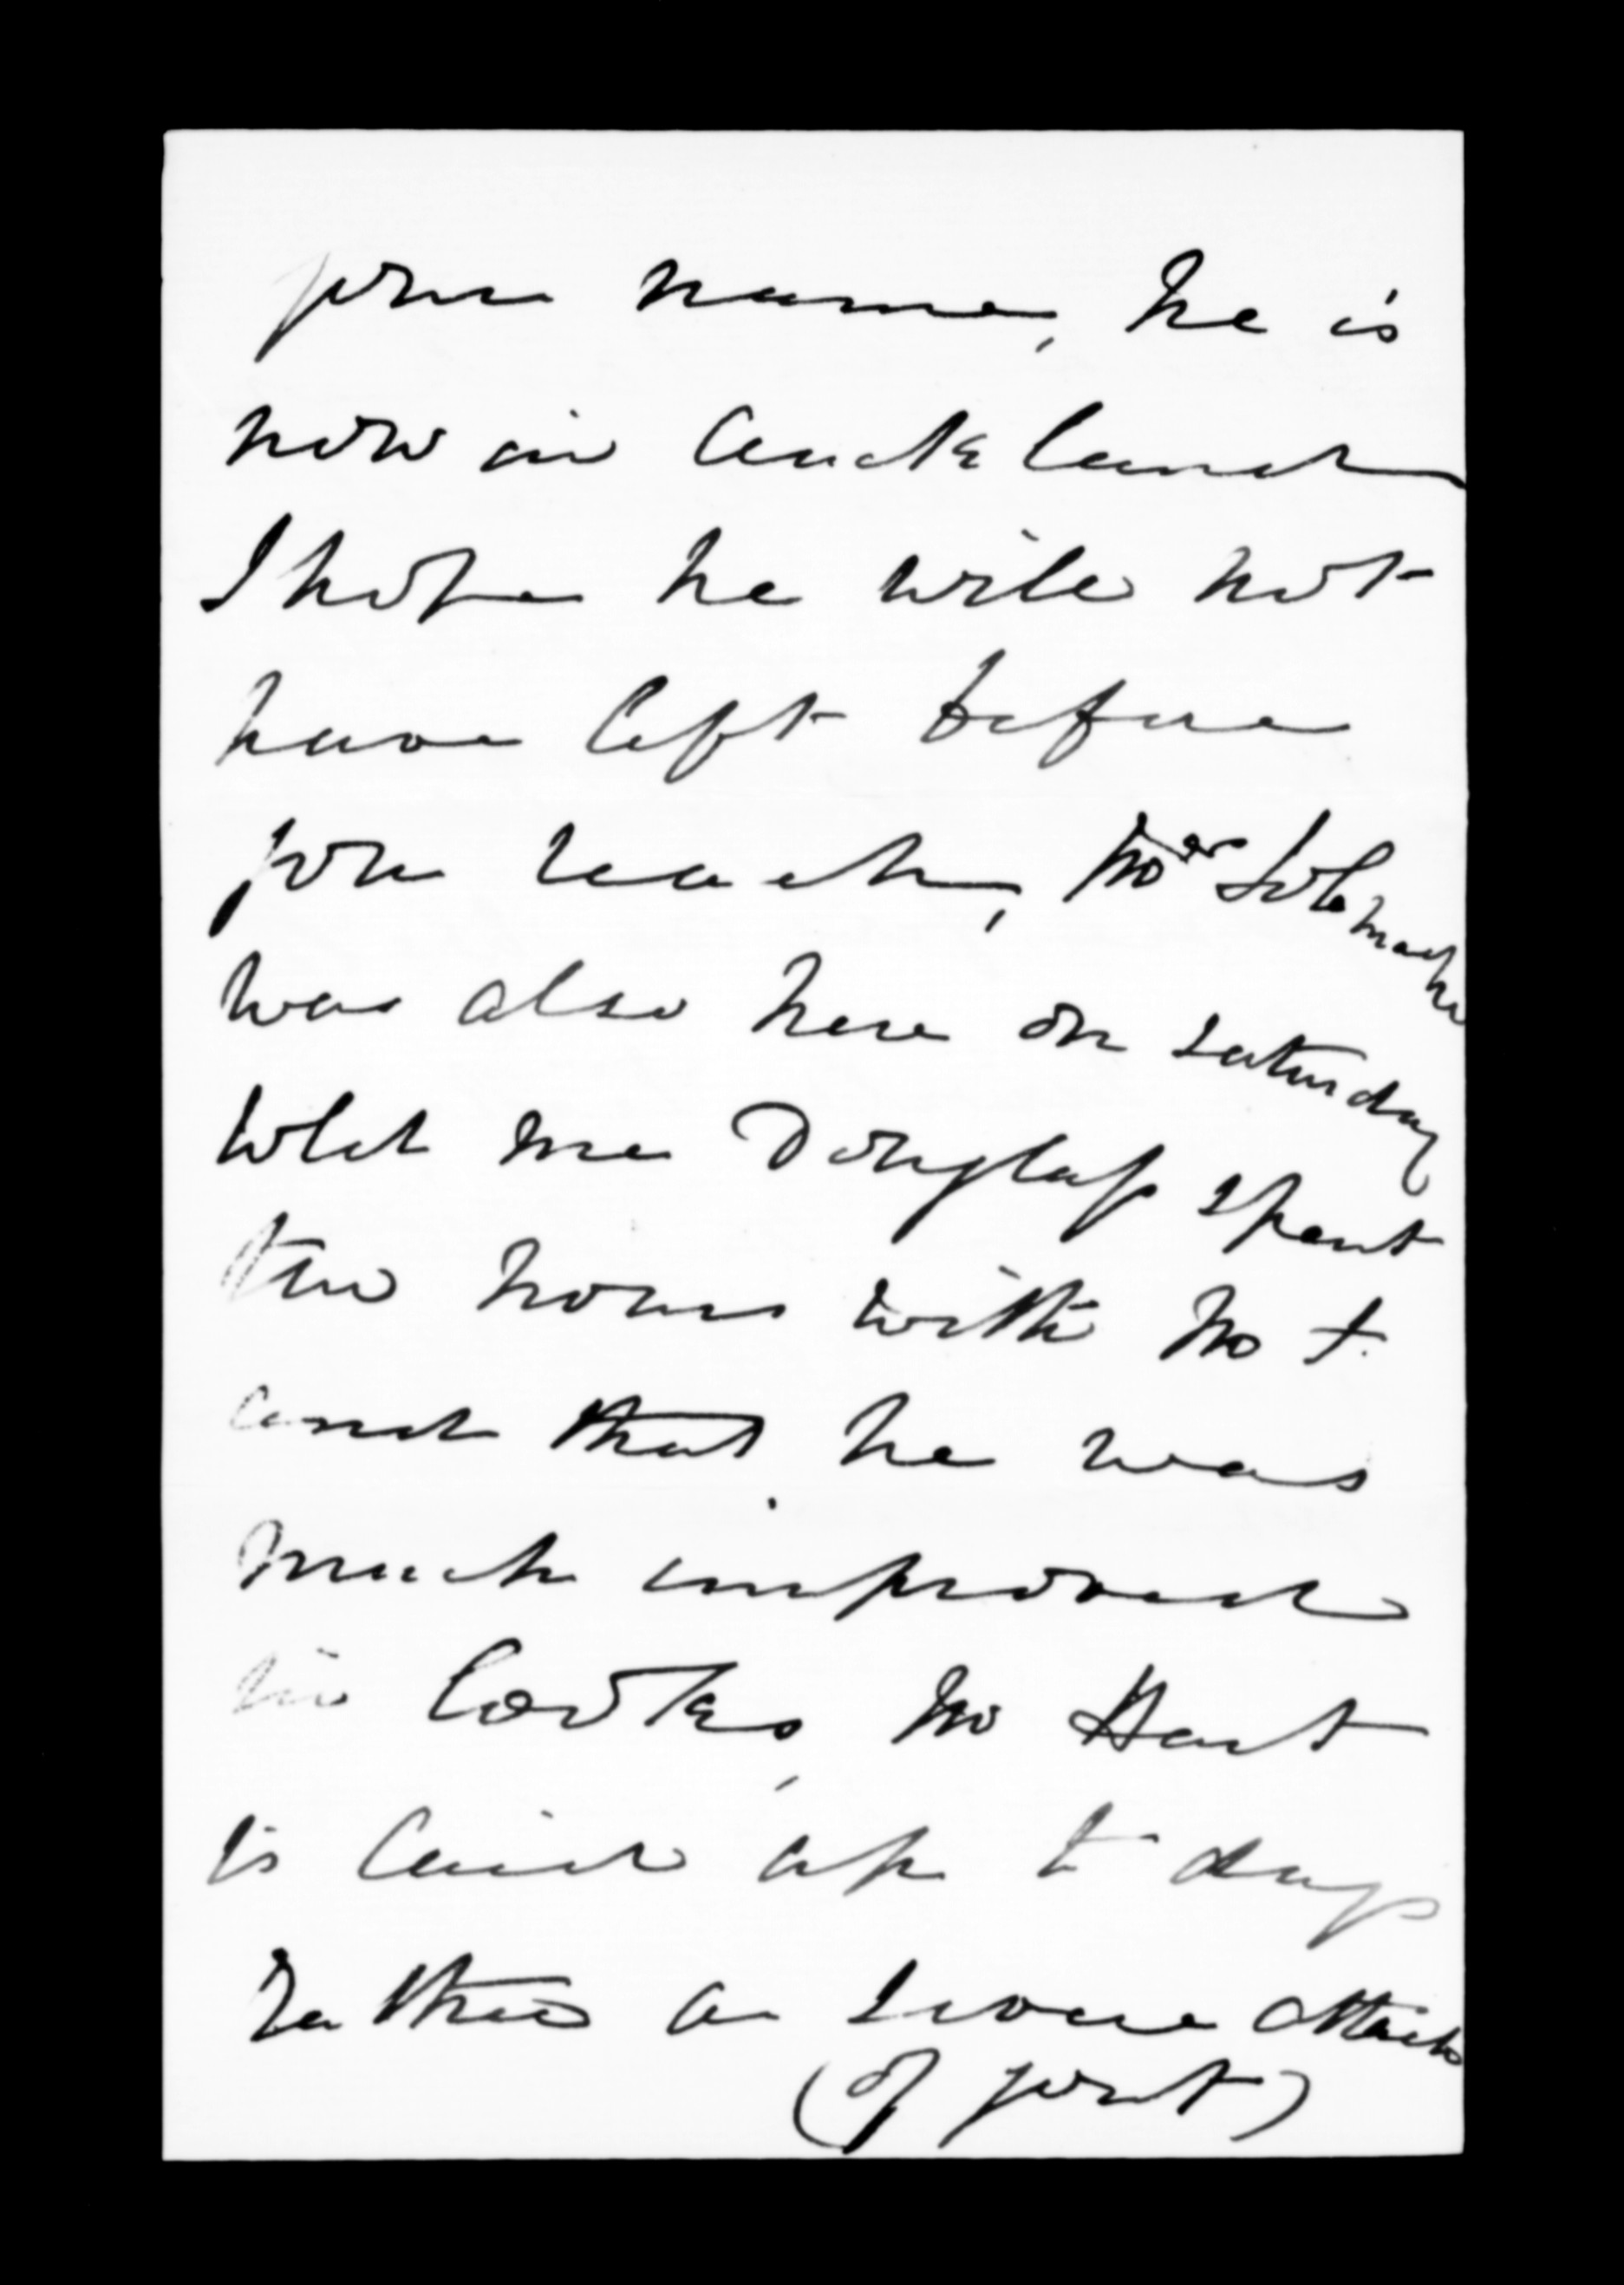 your name, he is
now in Auckland
I hope he will not
have left before
you reach, Mrs Tolemache
was also here on Saturday
told me Douglas spent
two hours with Mr T.
and that he was
much improved
in looks, Mr Hart
is laid up to day
rather a severe attack
(of gout)